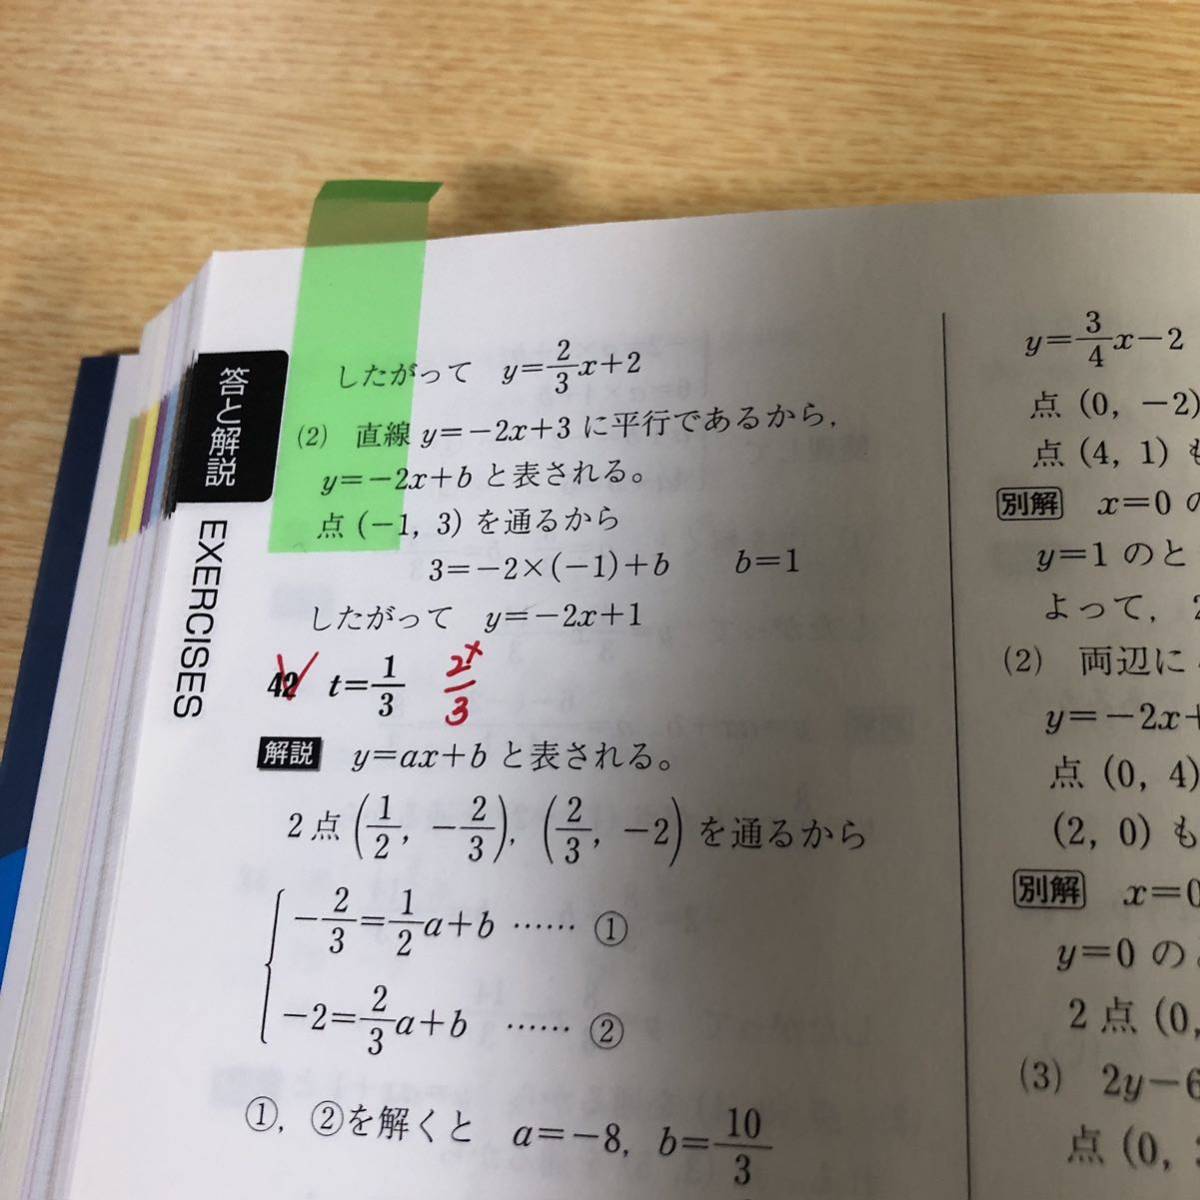 答と解説
EXERCISES
したがって y=2/3x+2
(2) 直線 y=-2x+3 に平行であるから,
y=-2x+b と表される。
点 (-1, 3) を通るから
3=-2×(-1)+b b=1
したがって y=-2x+1
42 t=1/3 2/3
解説 y=ax+b と表される。
2点 (1/2, -2/3), (2/3, -2) を通るから
-2/3=1/2a+b …… ①
-2=2/3a+b …… ②
①, ②を解くと a=-8, b=10/3
y=3/4x-2
点 (0, -2)
点 (4, 1) も
別解 x=0 の
y=1 のと
よって,
(2) 両辺に
y=-2x+
点 (0, 4)
(2, 0) も
別解 x=0
y=0 の
2点 (0,
(3) 2y-6
点 (0,